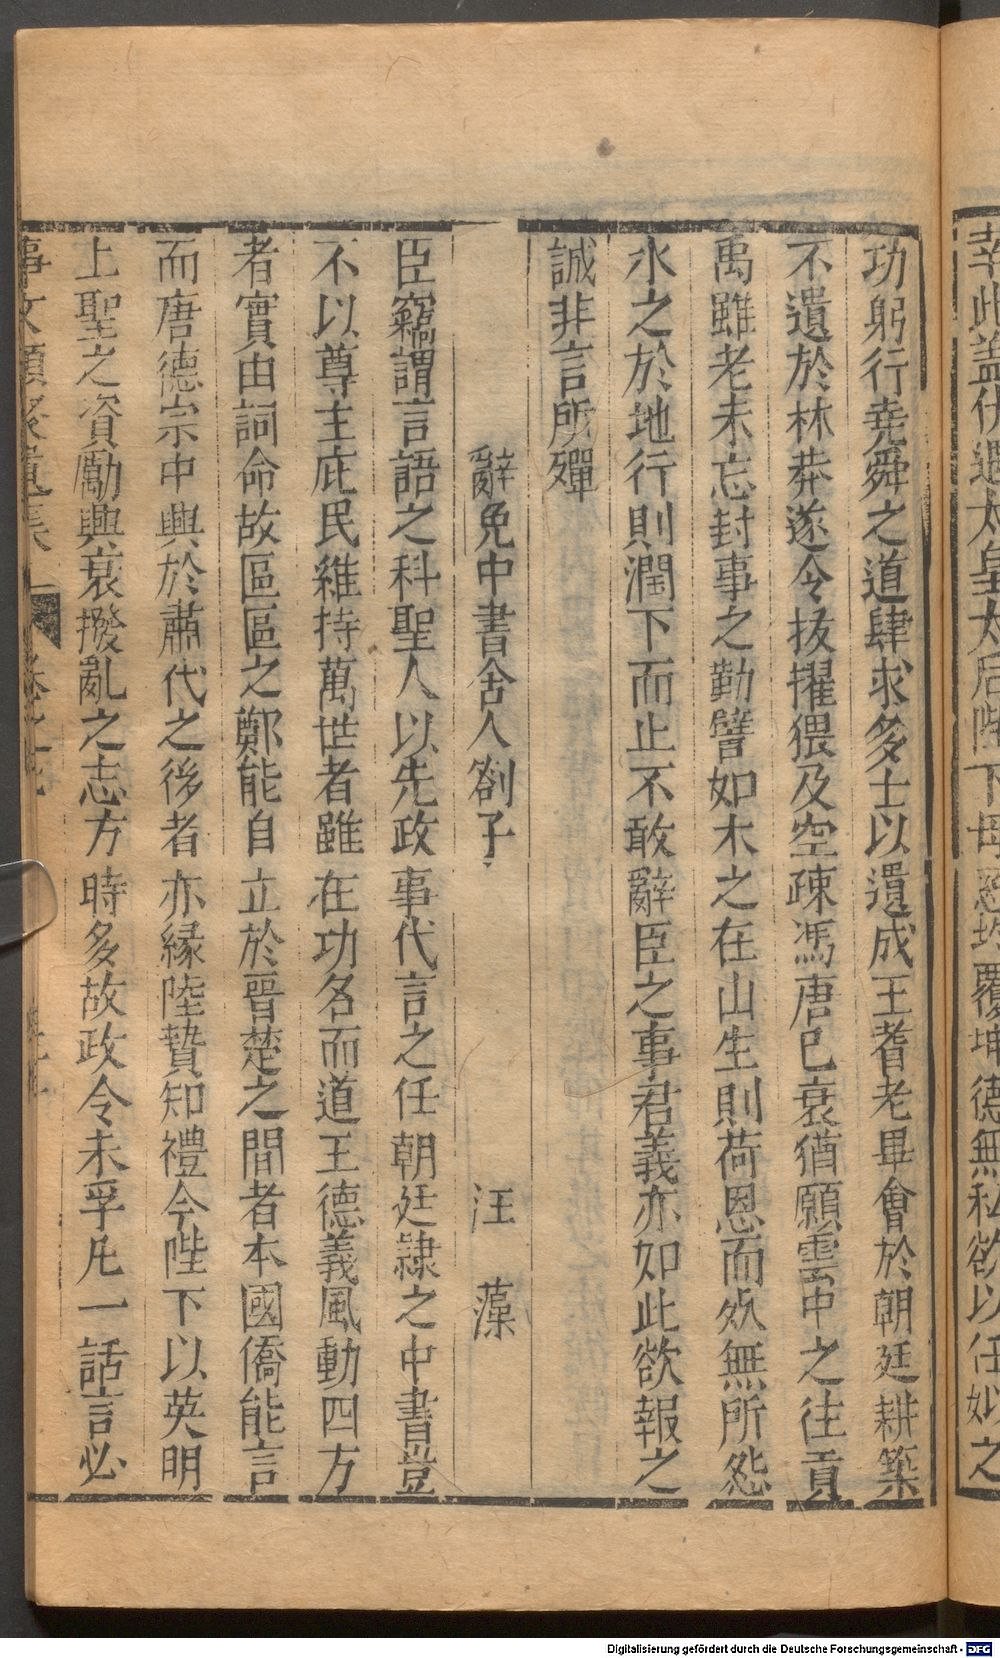 幸此蓋伏遇太皇太后陛下母慈均覆坤德無私欲以任姒之
功躬行堯舜之道肆求多士以遺成王耆老畢會於朝廷耕築
不遺於林莽遂令拔擢猥及空疎馮唐已衰猶願雲中之往貢
禹雖老未忘封事之勤譬如木之在山生則荷恩而烒無所怨
水之於地行則潤下而止不敢辭臣之事君義亦如此欲報之
誠非言所殫
辭免中書舍人劄子 汪藻
臣竊謂言語之科聖人以先政事代言之任朝廷隸之中書豈
不以尊主庇民維持萬世者雖在功名而道王德義風動四方
者實由詞命故區區之鄭能自立於晉楚之間者本國僑能言
而唐德宗中興於肅代之後者亦緣陸贄知禮今陛下以英明
上聖之資勵興衰撥亂之志方時多故政令未孚凡一話言必
事文類聚遺集 卷之
Digitalisierung gefördert durch die Deutsche Forschungsgemeinschaft - DFG